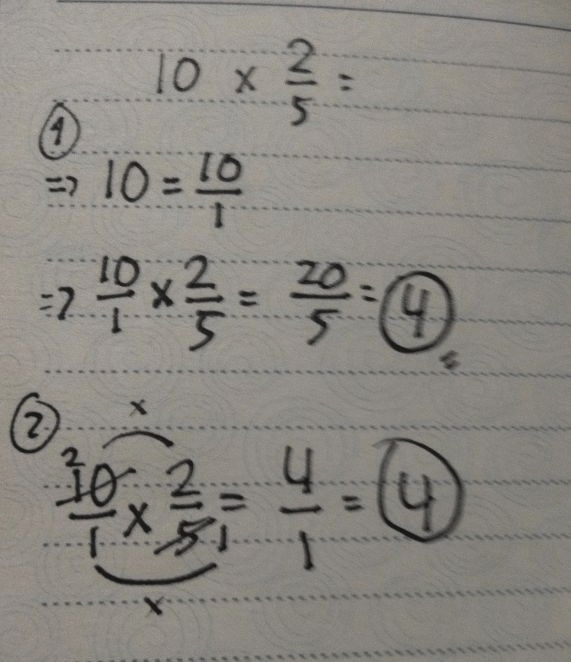 10 × 2/5 =
①
=> 10 = 10/1
=> 10/1 × 2/5 = 20/5 = 4
②
×
2
10/1 × 2/5 1 = 4/1 = 4
×